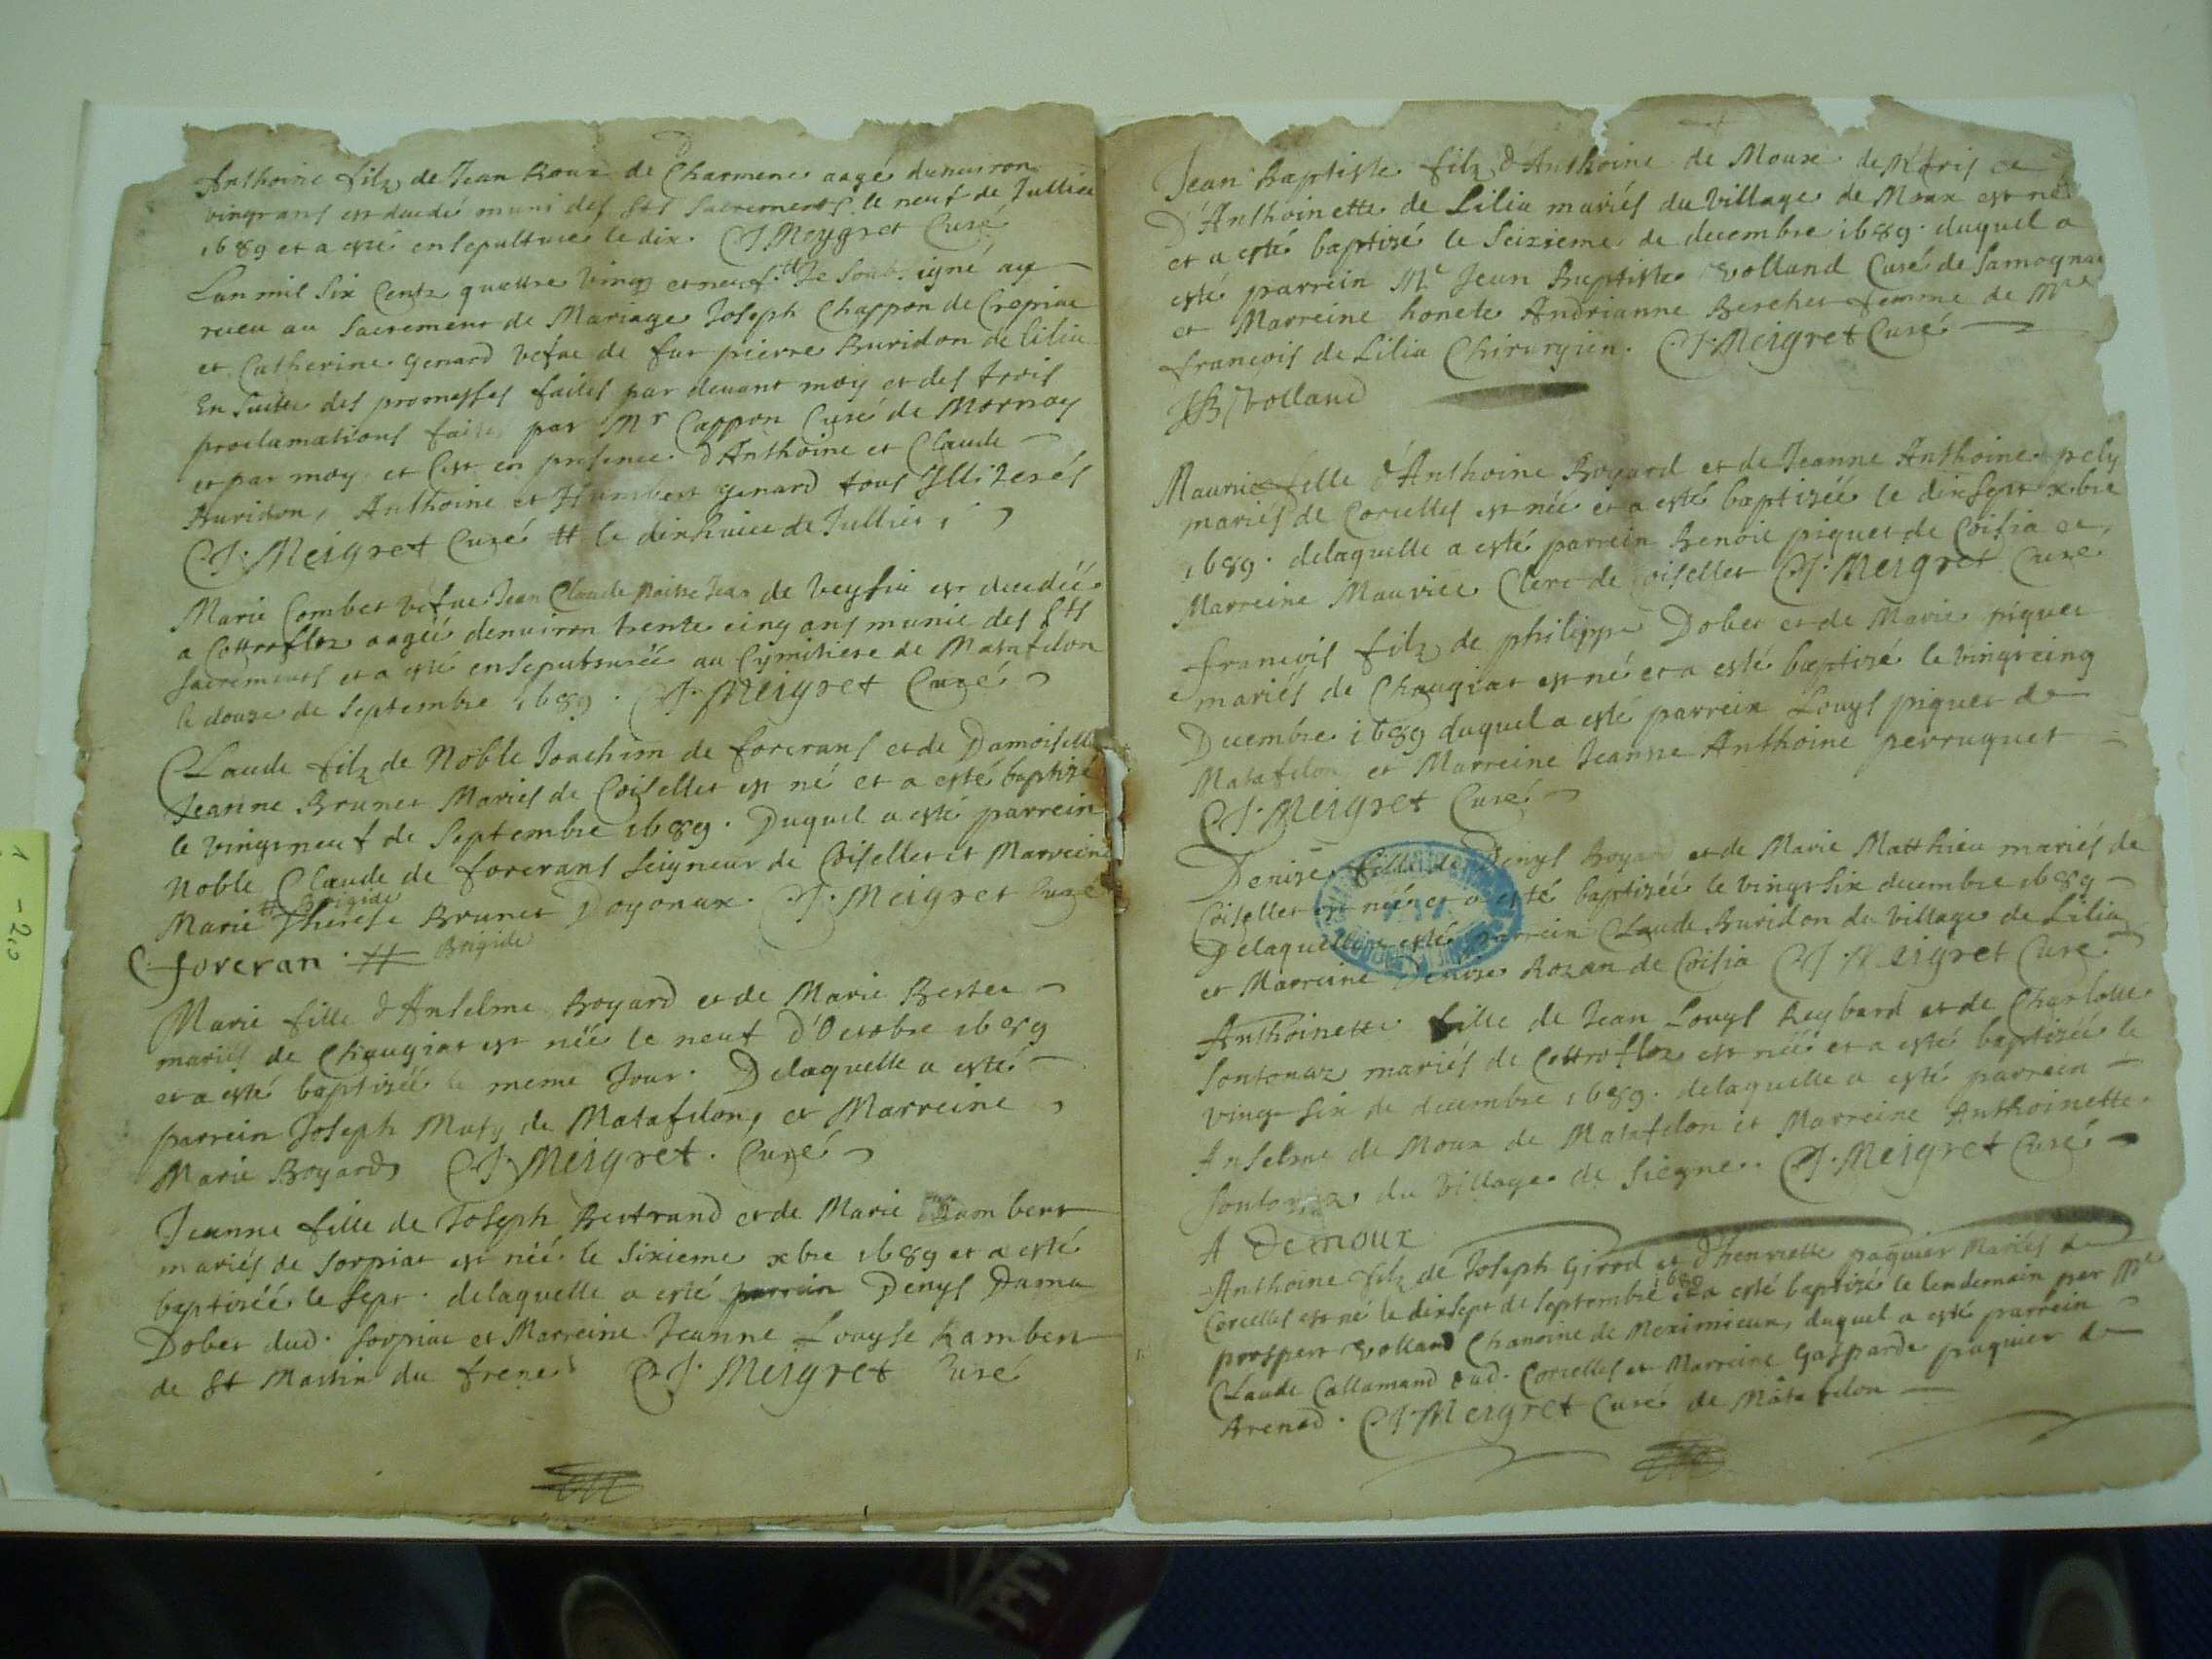 Anthoine filz de Jean Roux de Charmene aagé denuiron
vingt ans est decedé muni des Sts Sacrements le neuf de Jullier
1689 et a esté ensepulturé le dix. C J. Meygret Curé
Lan mil Six Centz quattre vingt et neuf # Je Soub. igné ay
receu au Sacrement de Mariage Joseph Chappon de Crepiac
et Catherine Genard vefue de fut pierre Buridon de Lilia
En Suitte des promesses faites par deuant moy et des trois
proclamations faites par Mr Cappon Curé de Mornay
et par moy et C'est en presence d'Anthoine et Claude
Buridon, Anthoine et Humbert Genard tous Illiterés
C J. Meigret Curé # le dixhuict de Jullier,
Marie Combet vefue Jean Claude de Veysia est decedée
a Cottrofloz aagée denuiron trente cinq ans munie des Sts
Sacrements et a esté ensepulturée au Cymitiere de Matafelon
le douze de Septembre 1689. C J. Meigret Curé
Claude filz de Noble Joachim de forcrans et de Damoiselle
Jeanne Brunet Mariés de Coisellet est né et a esté baptizé
le vingtneuf de Septembre 1689. Duquel a esté parrein
Noble Claude de forcrans Seigneur de Coisellet et Marreine
# Brigide
Marie Therese Brunet Doyonax. C J. Meigret Curé
C. forcran. # Brigide
Marie fille d'Anselme Boyard et de Marie Bestee
mariés de Chaugiat est née le neuf d'Octobre 1689
et a esté baptizée le meme Jour. Delaquelle a esté
parrein Joseph Muty de Matafelon, et Marreine
Marie Boyard C J. Meigret. Curé
Jeanne fille de Joseph Bertrand et de Marie Rambert
mariés de Sorpiat est née le Sixieme xbre 1689 et a esté
baptizée le Sept. delaquelle a esté parrein Denys Dama
Dobet dud. Sorpiat et Marreine Jeanne Louyse Rambert
de St Martin du frene C J. Meigret Curé
Jean Baptiste filz d'Anthoine de Moux de
D'Anthoinette de Lilia mariés du Village de Moux est né
et a esté baptizé le Seizieme de decembre 1689. duquel a
esté parrein Mre Jean Baptiste Volland Curé de Samognat
et Marreine honete Andrianne Berchet femme de Mre
françois de Lilia Chirurgien. C J. Meigret Curé
JB Volland
Maurice fille d'Anthoine Boyard et de Jeanne Anthoine pely
mariés de Corcelles est née et a esté baptizée le dixsept xbre
1689. delaquelle a esté parrein Benoit piquet de Coisia et
Marreine Maurice Clerc de Coisellet C J. Meigret Curé
françois filz de philippe Dobet et de Marie piquet
mariés de Chaugiat est né et a esté baptizé le vingtcinq
Decembre 1689 duquel a esté parrein Louys piquet de
Matafelon et Marreine Jeanne Anthoine perruquet
C J. Meigret Curé
Denize fille de Denys Boyard et de Marie Matthieu mariés de
Coisellet est née et a esté baptizée le vingtSix decembre 1689
Delaquelle a esté parrein Claude Buridon du Village de Lilia
et Marreine Denize Rozan de Coisia C J. Meigret Curé
Anthoinette fille de Jean Louys Reybard et de Charlotte
Sontonaz mariés de Cottrofloz est née et a esté baptizée le
vingt Six de decembre 1689. delaquelle a esté parrein
Anselme de Moux de Matafelon et Marreine Anthoinette
Sontonaz du Village de Siegne. C J. Meigret Curé
A Demoux
Anthoine filz de Joseph Girod et d'henriette paquier Mariés de
Corcelles est né le dixsept de Septembre 1689 a esté baptizé le lendemain par Mre
prosper Volland Chanoine de Meximieux, duquel a esté parrein
Claude Callamand dud. Corcelles et Marreine Gasparde paquier de
Arened. C J. Meigret Curé de Matafelon